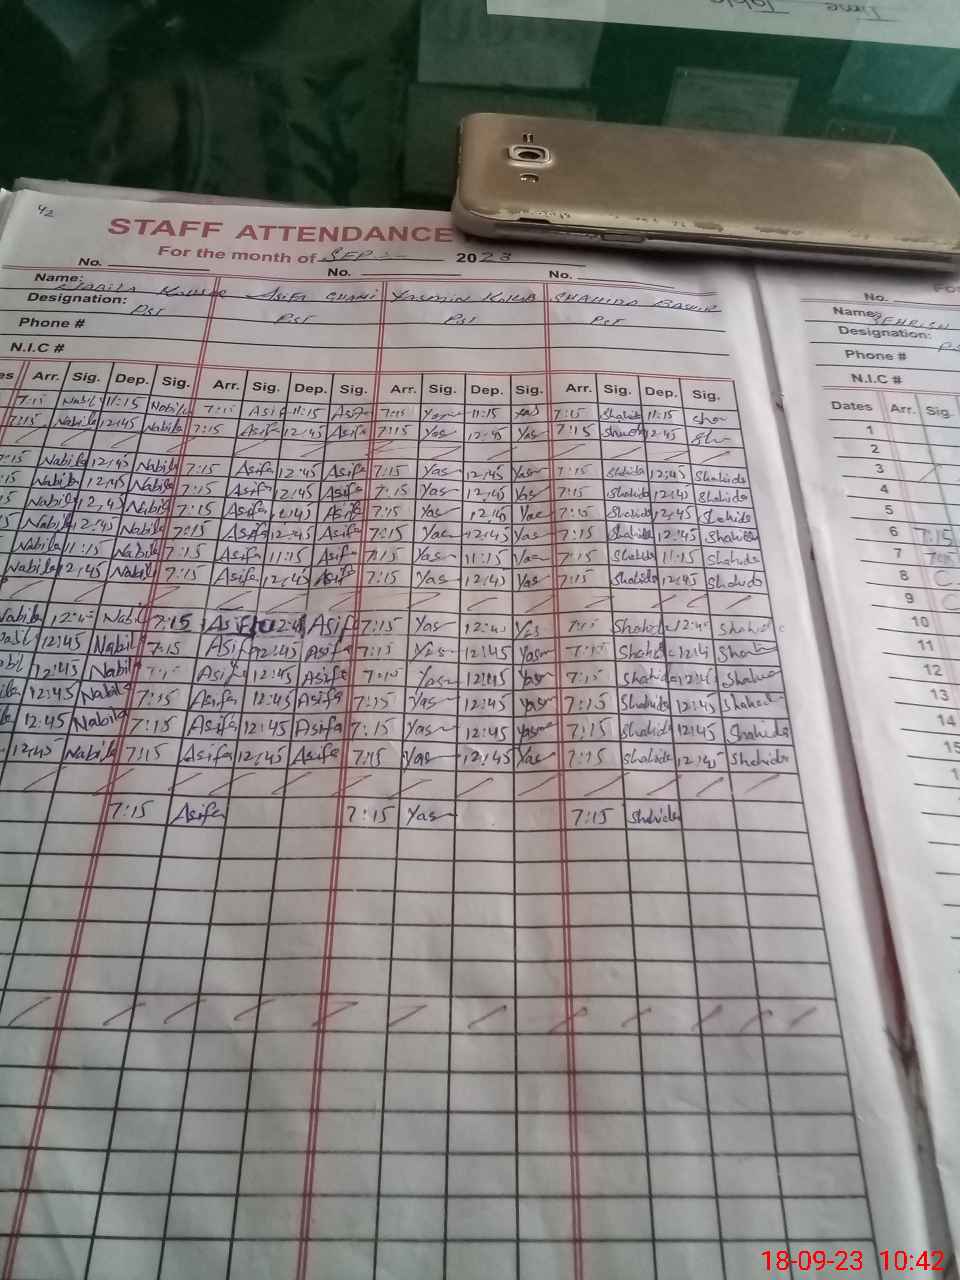 Time Table
42
STAFF ATTENDANCE
For the month of SEP 2023
No. No. No.
Name: Nabila Asifa Ghani Yasmin Shahida Bashir
Designation: PST PST PST PST
Phone #
N.I.C #
es Arr. Sig. Dep. Sig. Arr. Sig. Dep. Sig. Arr. Sig. Dep. Sig. Arr. Sig. Dep. Sig.
7:15 Nabila 11:15 Nabila 7:15 Asif 11:15 Asifa 7:15 Yas 11:15 Yas 7:15 Shahida 11:15 Sha
7:15 Nabila 12:45 Nabila 7:15 Asifa 12:45 Asifa 7:15 Yas 12:45 Yas 7:15 Shahida 12:45
7:15 Nabila 12:45 Nabila 7:15 Asifa 12:45 Asifa 7:15 Yas 12:45 Yas 7:15 Shahida 12:45 Shahida
:15 Nabila 12:45 Nabila 7:15 Asifa 12:45 Asifa 7:15 Yas 12:45 Yas 7:15 Shahida 12:45 Shahida
:15 Nabila 12:45 Nabila 7:15 Asifa 12:45 Asifa 7:15 Yas 12:45 Yas 7:15 Shahida 12:45 Shahida
5 Nabila 12:45 Nabila 7:15 Asifa 12:45 Asifa 7:15 Yas 12:45 Yas 7:15 Shahida 12:45 Shahida
Nabila 11:15 Nabila 7:15 Asifa 11:15 Asifa 7:15 Yas 11:15 Yas 7:15 Shahida 11:15 Shahida
Nabila 12:45 Nabila 7:15 Asifa 12:45 Asifa 7:15 Yas 12:45 Yas 7:15 Shahida 12:45 Shahida
Nabila 12:45 Nabil 7:15 Asifa 12:45 Asif 7:15 Yas 12:45 Yas 7:15 Shahid 12:45 Shahid
12:45 Nabil 7:15 Asif 12:45 Asifa 7:15 Yas 12:45 Yasm 7:15 Shahid 12:45 Sha
12:45 Nabila 7:15 Asifa 12:45 Asifa 7:15 Yasm 12:45 Yasm 7:15 Shahida 12:45 Shahida
12:45 Nabila 7:15 Asifa 12:45 Asifa 7:15 Yas 12:45 Yasm 7:15 Shahida 12:45 Shahida
12:45 Nabila 7:15 Asifa 12:45 Asifa 7:15 Yas 12:45 Yasm 7:15 Shahida 12:45 Shahida
12:45 Nabila 7:15 Asifa 12:45 Asifa 7:15 Yas 12:45 Yas 7:15 Shahida 12:45 Shahida
7:15 Asifa 7:15 Yas 7:15 Shahida
No.
Name: SEHRISH
Designation: PS
Phone #
N.I.C #
Dates Arr. Sig.
1
2
3
4
5
6 7:15
7
8 C
9 C
10
11
12
13
14
15
1
18-09-23 10:42